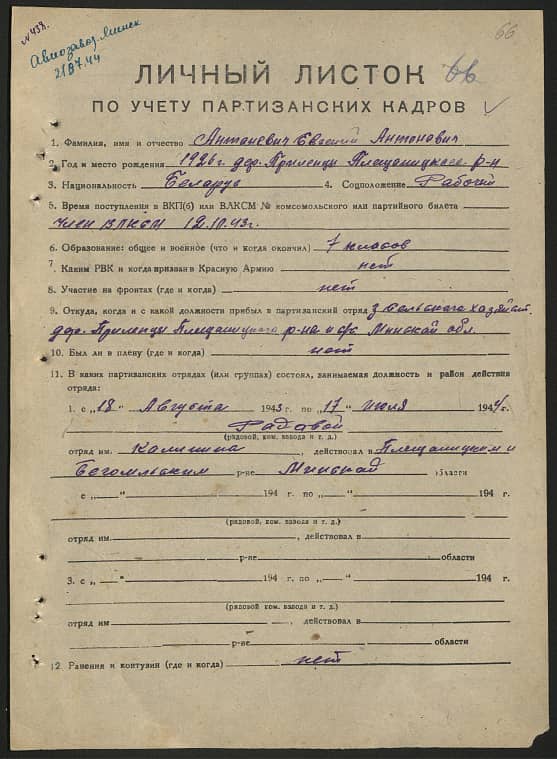 N 438.
66
Авиозавод. Минск
21/VII.44
ЛИЧНЫЙ ЛИСТОК
ПО УЧЕТУ ПАРТИЗАНСКИХ КАДРОВ
1. Фамилия, имя и отчество Антаневич Евгений Антонович
2. Год и место рождения 1926 г. дер. Приленцы Плещаницкого р-н
3. Национальность Беларус 4. Соцположение Рабочий
5. Время поступления в ВКП(б) или ВЛКСМ № комсомольского или партийного билета
член ВЛКСМ 12.IV.43 г.
6. Образование: общее и военное (что и когда окончил) 7 класов
7. Каким РВК и когда призван в Красную Армию нет
8. Участие на фронтах (где и когда) нет
9. Откуда, когда и с какой должности прибыл в партизанский отряд з сельского хозяйст.
дер. Приленцы Плещаницкого р-на Минской обл.
10. Был ли в плену (где и когда) нет
11. В каких партизанских отрядах (или группах) состоял, занимаемая должность и район действия
отряда:
1. с „18“ Августа 1943 г. по „17“ июля 1944 г.
Радавой
(рядовой, ком. взвода и т. д.)
отряд им. Калинина, действовал в Плещаницким и
Бегомльским р-не Минскай области
с „ “ 194 г. по „ “ 194 г.
(рядовой, ком. взвода и т. д.)
отряд им. , действовал в
р-не области
3. с „ “ 194 г. по „ “ 194 г.
(рядовой, ком. взвода и т. д.)
отряд им , действовал в
р-не области
12. Ранения и контузии (где и когда) нет